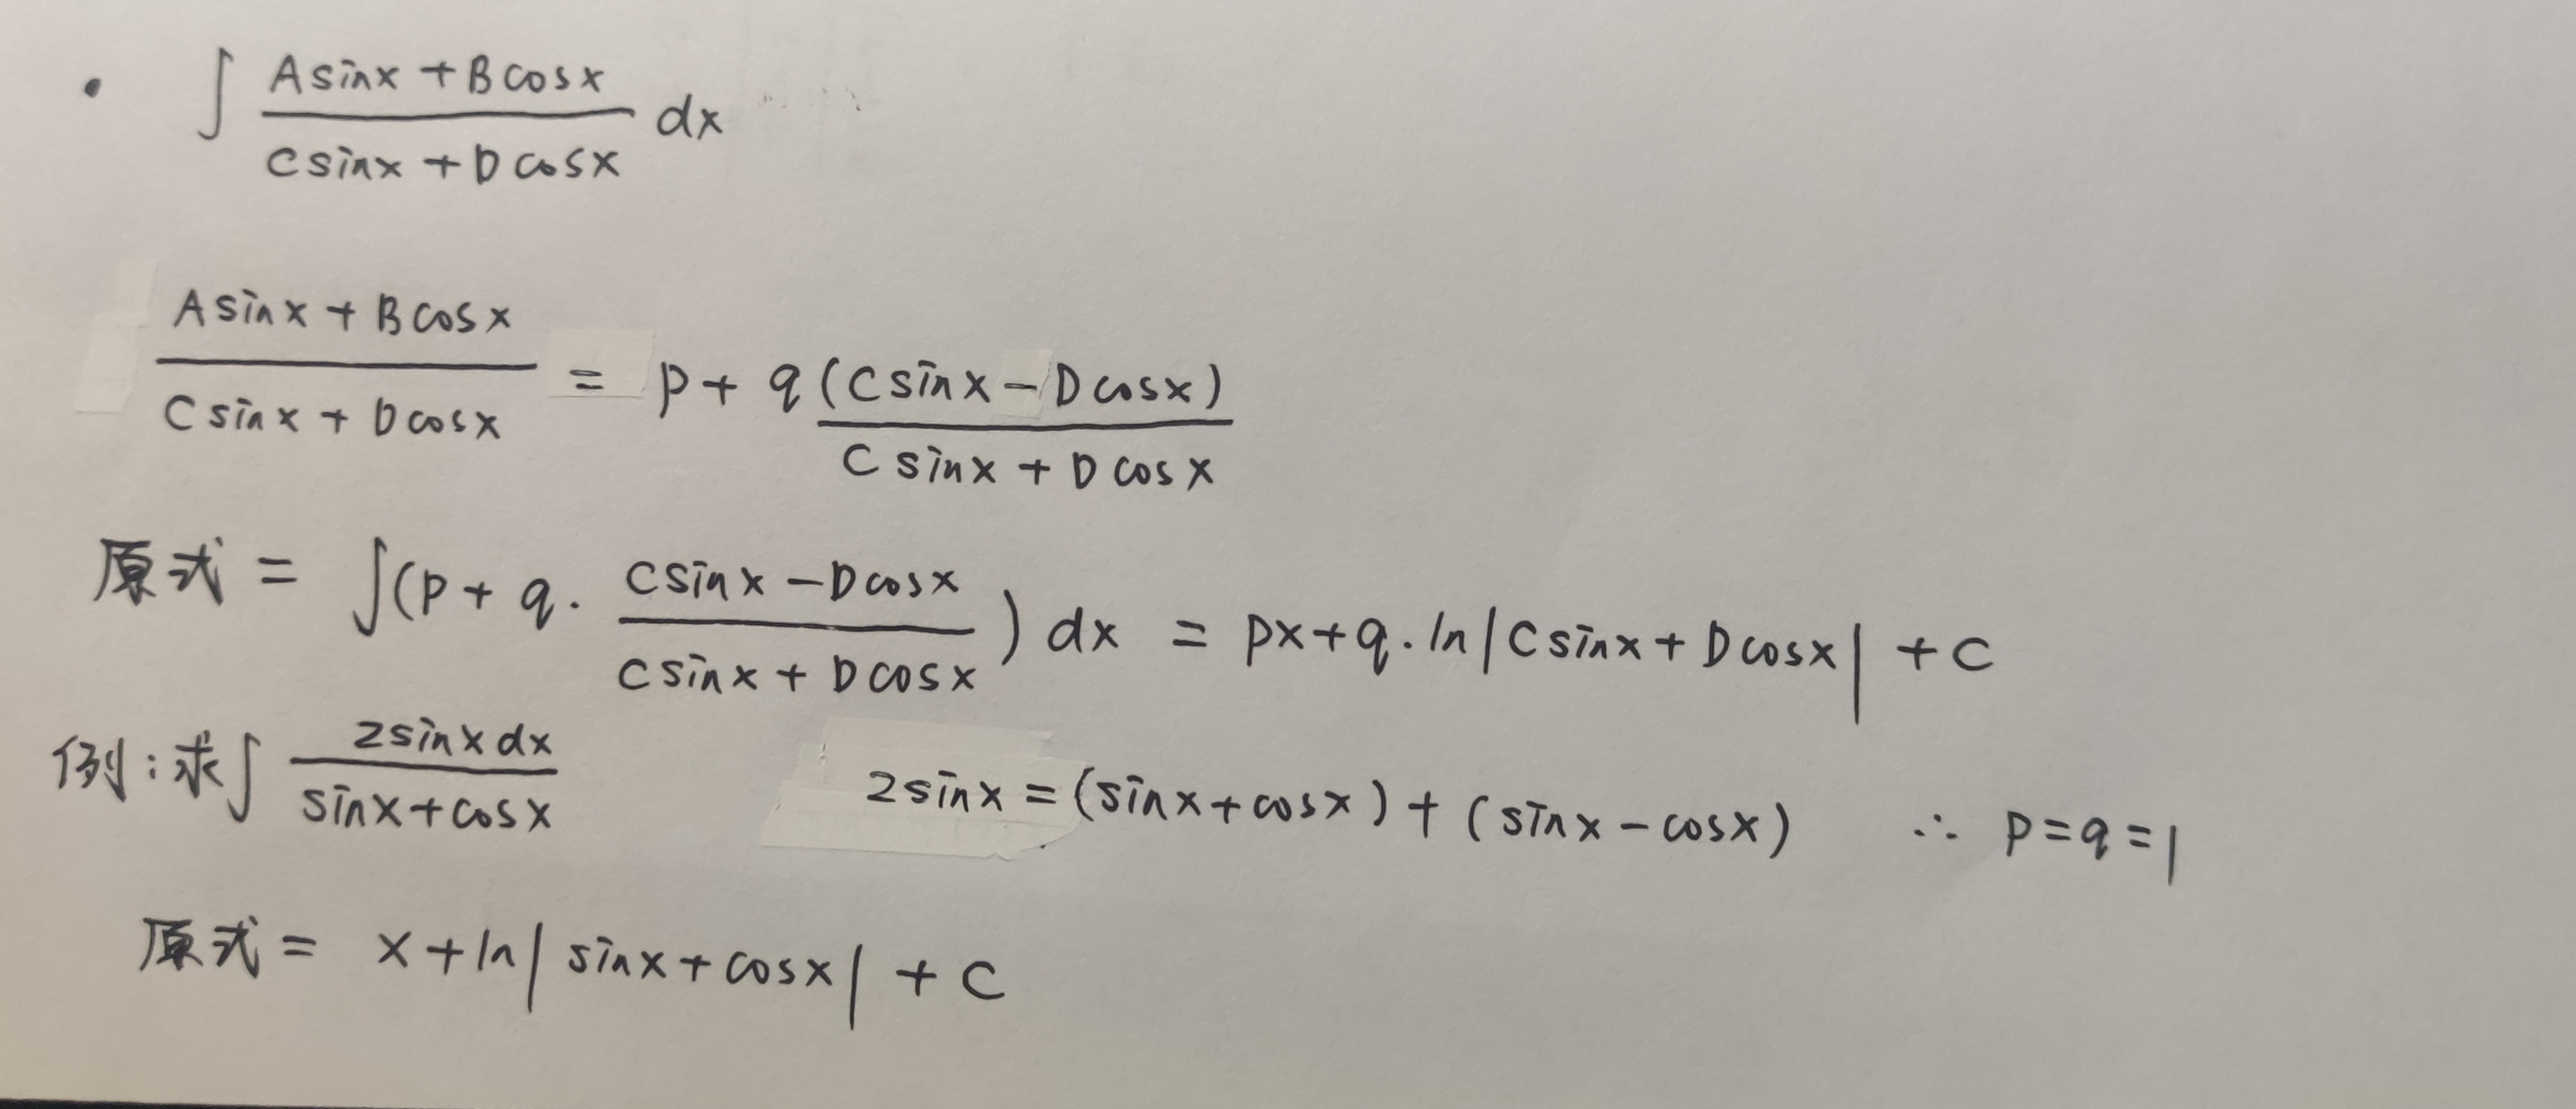 • ∫ (A sinx + B cosx)/(C sinx + D cosx) dx
(A sinx + B cosx)/(C sinx + D cosx) = p + q (C sinx − D cosx)/(C sinx + D cosx)
原式 = ∫(p + q · (C sinx − D cosx)/(C sinx + D cosx)) dx = px + q · ln|C sinx + D cosx| + C
例:求∫ 2sinx dx/(sinx + cosx) 2sinx = (sinx + cosx) + (sinx − cosx) ∴ p = q = 1
原式 = x + ln|sinx + cosx| + C